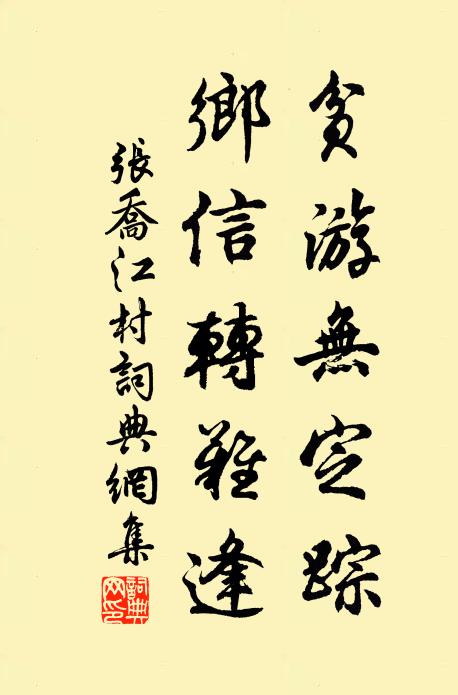 貧游無定踪
鄉信轉難逢
張喬江村詞典網集
詞典网印